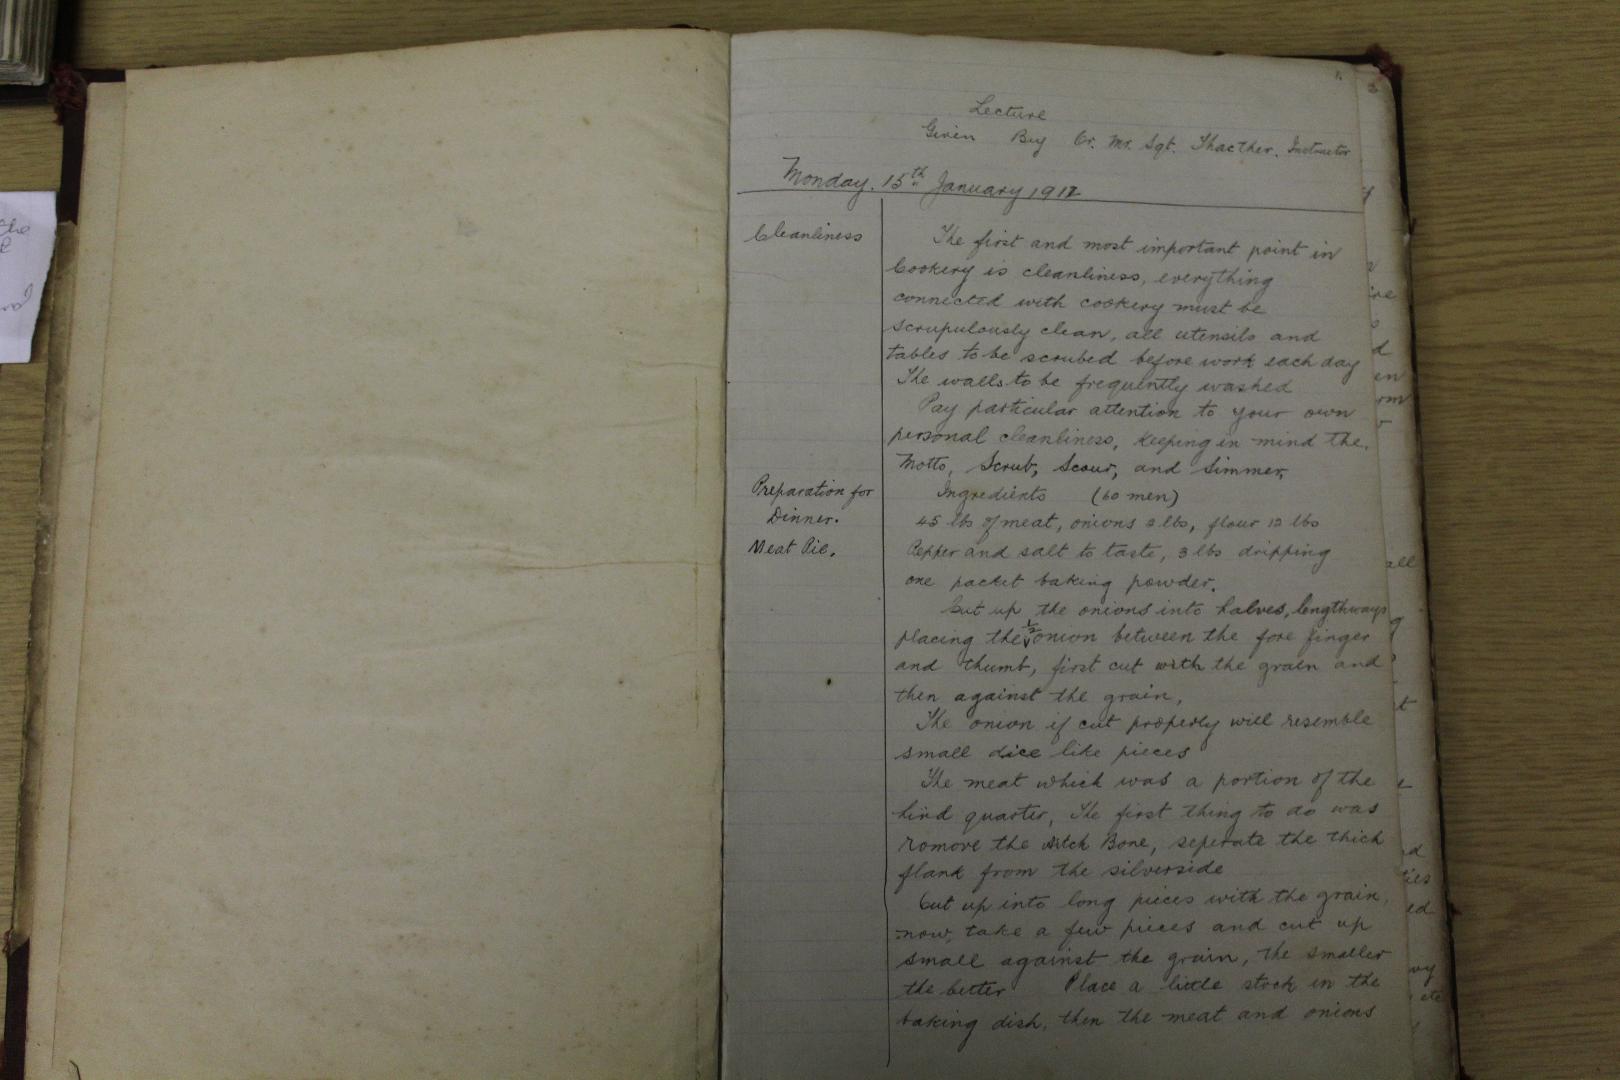 1.
Lecture
Given Buy Cr. Mr. Sgt. Thacther. Instructor
Monday. 15th January 1917
Cleanliness
The first and most important point in
Cookery is cleanliness, everything
connected with cookery must be
scrupulously clean, all utensils and
tables to be scrubed before work each day
The walls to be frequently washed
Pay particular attention to your own
personal cleanliness, keeping in mind the.
Motto, Scrub, Scour, and Simmer,
Preparation for
Dinner.
Meat Pie.
Ingredients (60 men)
45 lbs of meat, onions 2 lbs, flour 12 lbs
Pepper and salt to taste, 3 lbs dripping
one packet baking powder.
Cut up the onions into halves, lengthways
placing the 1/2 onion between the fore finger
and thumb, first cut with the grain and
then against the grain,
The onion if cut properly will resemble
small dice like pieces
The meat which was a portion of the
hind quarter, The first thing to do was
romove the aitch Bone, seperate the thick
flank from the silverside
Cut up into long pieces with the grain,
now, take a few pieces and cut up
small against the grain, the smaller
the better Place a little stock in the
baking dish, then the meat and onions